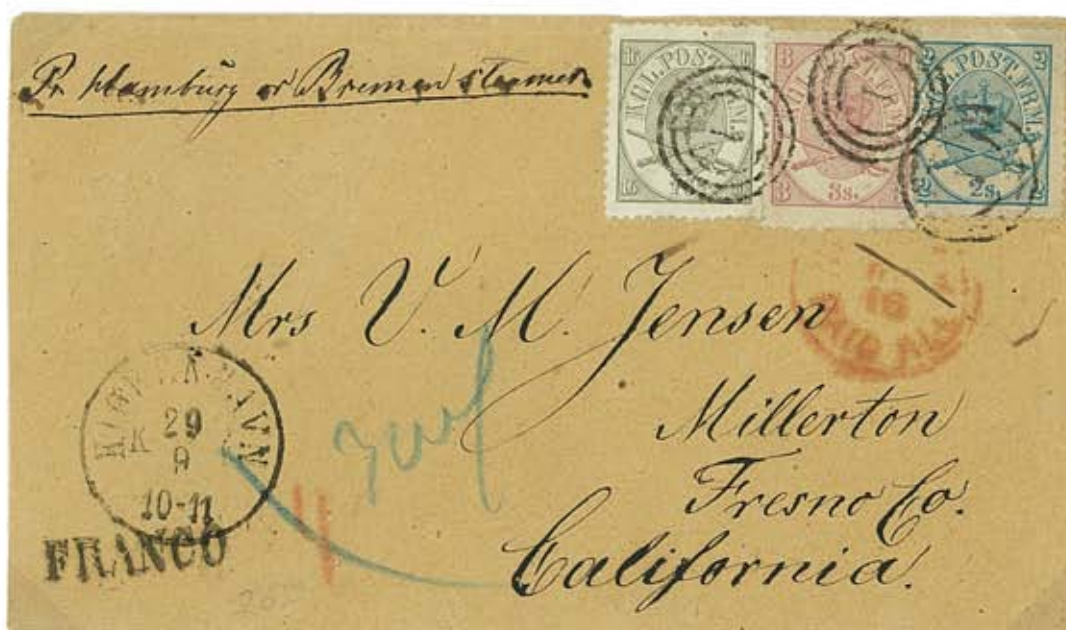 Pr Hamburg or Bremen steamer
16 16 KGL. POST. FRM.
3 3 KGL. POST. FRM. 3s. 3
2 2 KGL. POST. FRM. 2 2s. 2
1
1
1
Mrs V. M. Jensen
PAID ALL
Millerton
Fresno Co.
California.
KJØBENHAVN
K 29
9
10-11
FRANCO